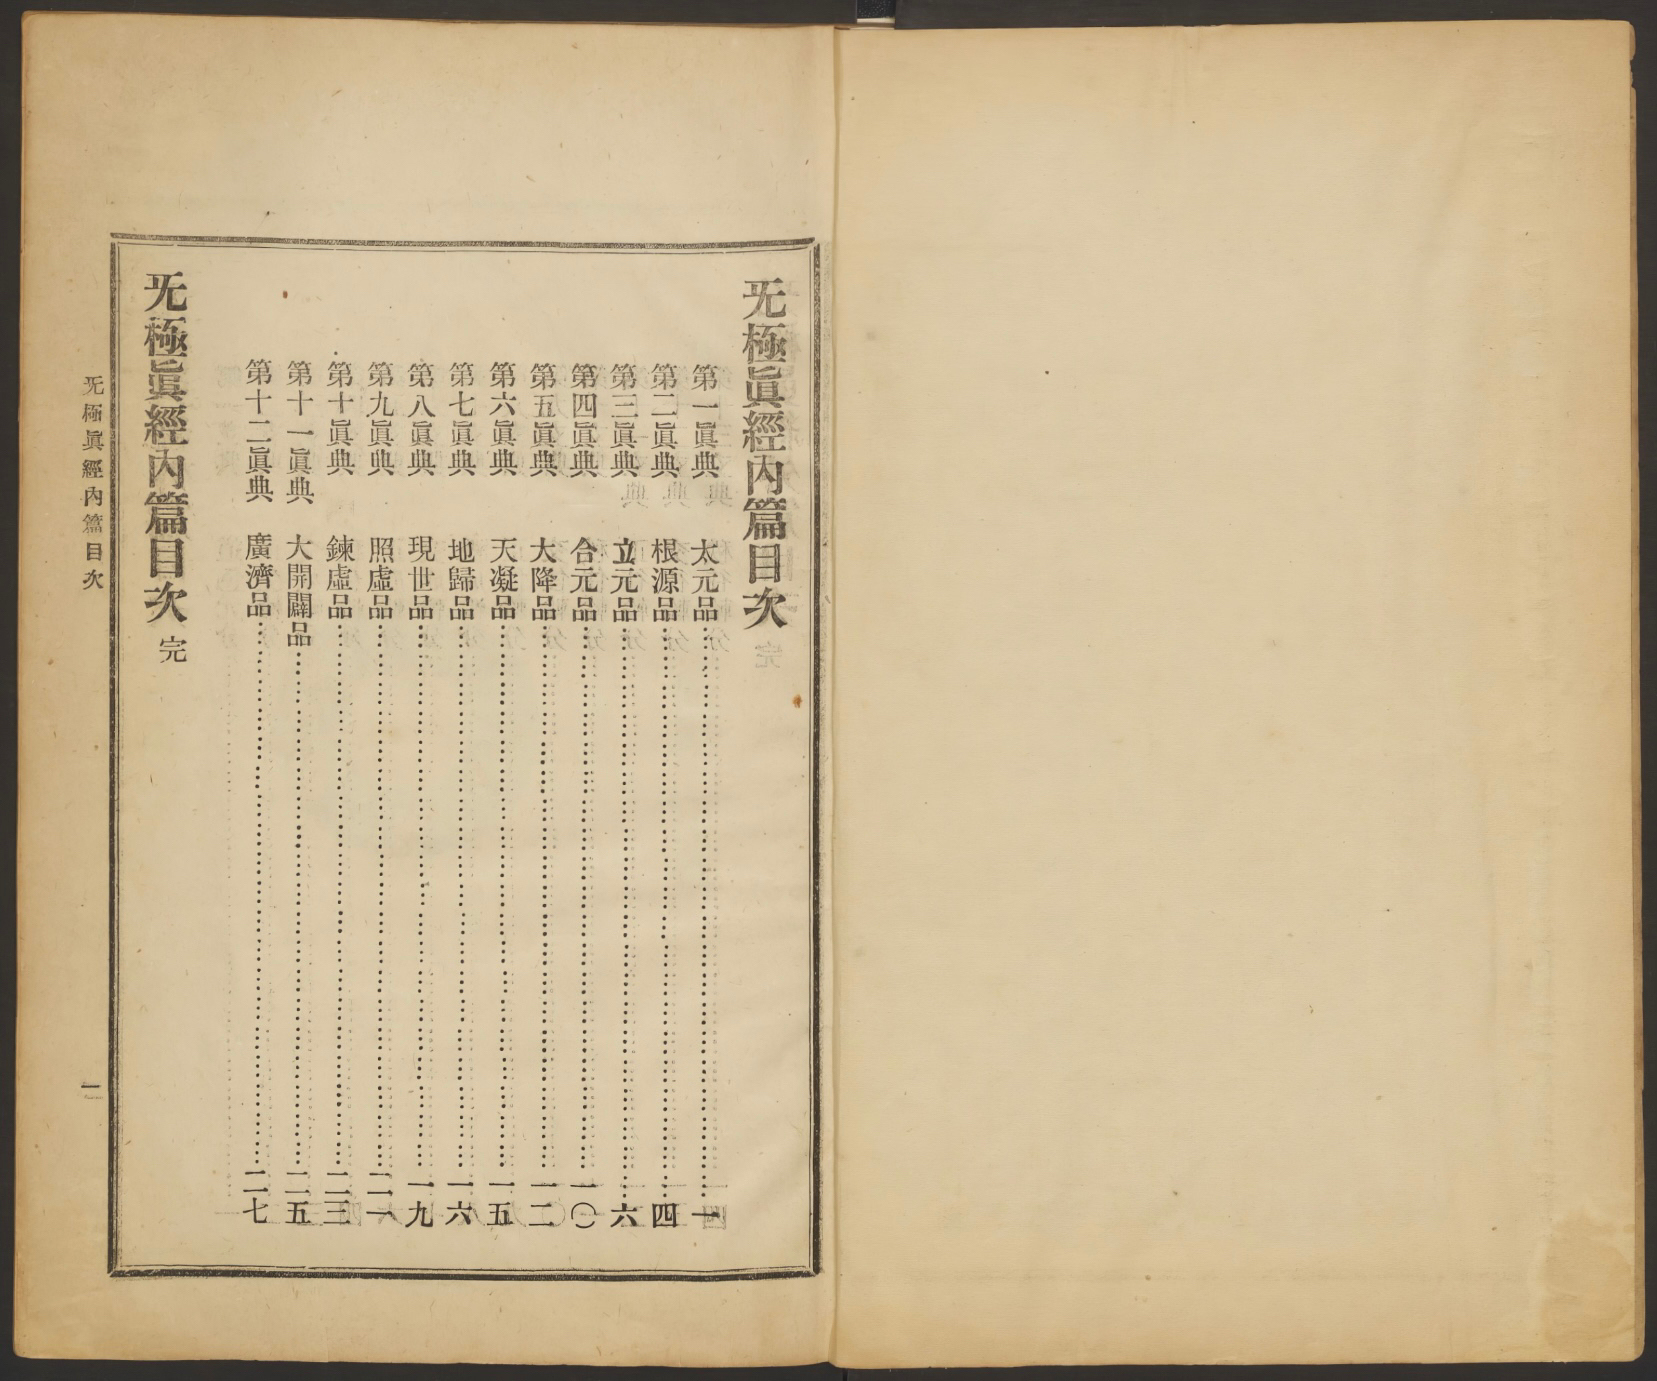 旡極眞經內篇目次
第一眞典　太元品……一
第二眞典　根源品……四
第三眞典　立元品……六
第四眞典　合元品……一〇
第五眞典　大降品……一二
第六眞典　天凝品……一五
第七眞典　地歸品……一六
第八眞典　現世品……一九
第九眞典　照虛品……二一
第十眞典　鍊虛品……二三
第十一眞典　大開闢品……二五
第十二眞典　廣濟品……二七
旡極眞經內篇目次　完
旡極眞經內篇目次　一